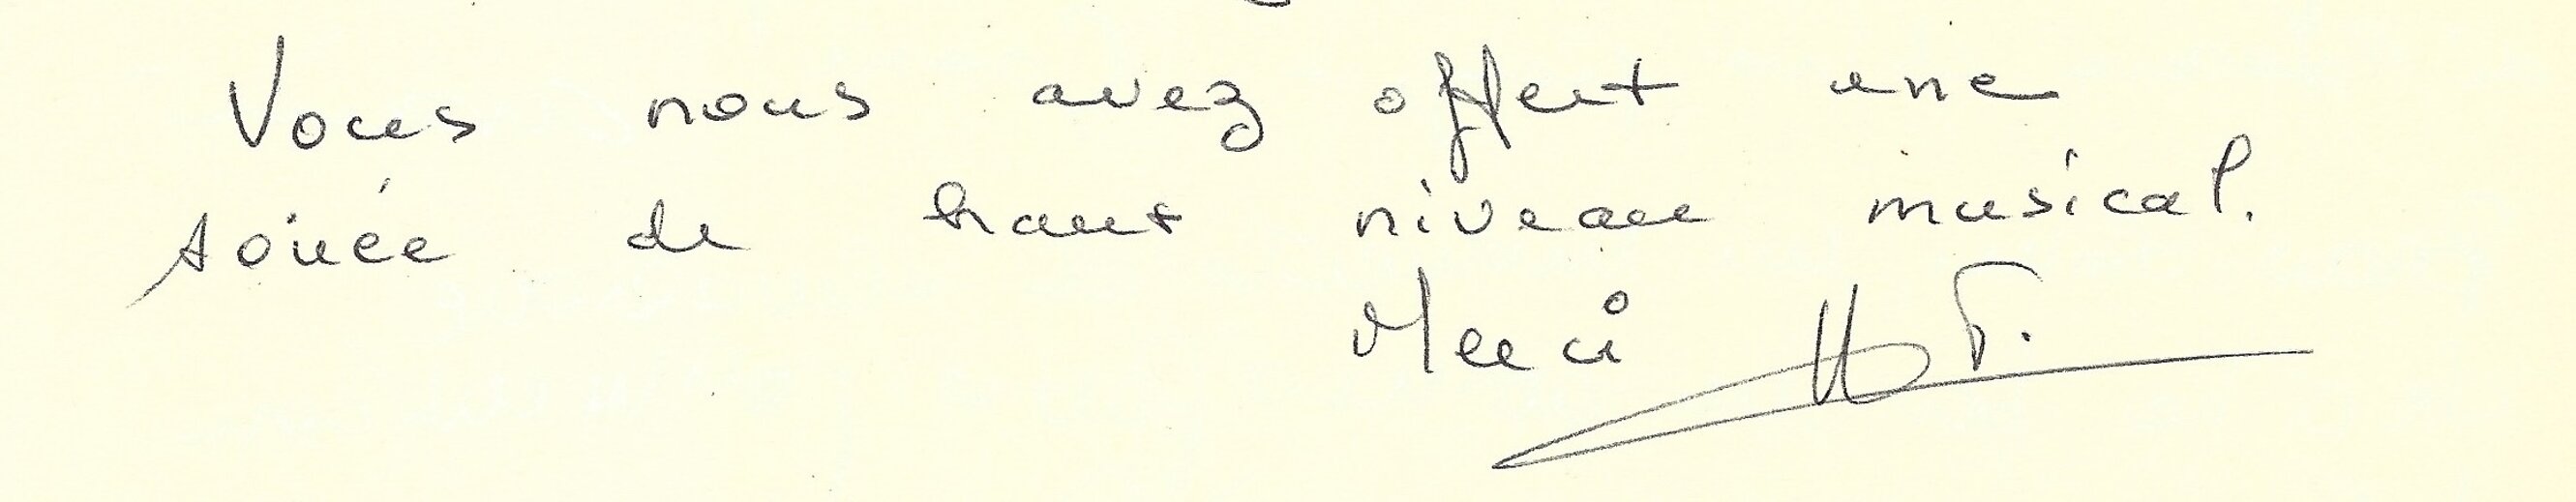 Vous nous avez offert une
soirée de haut niveau musical.
Merci